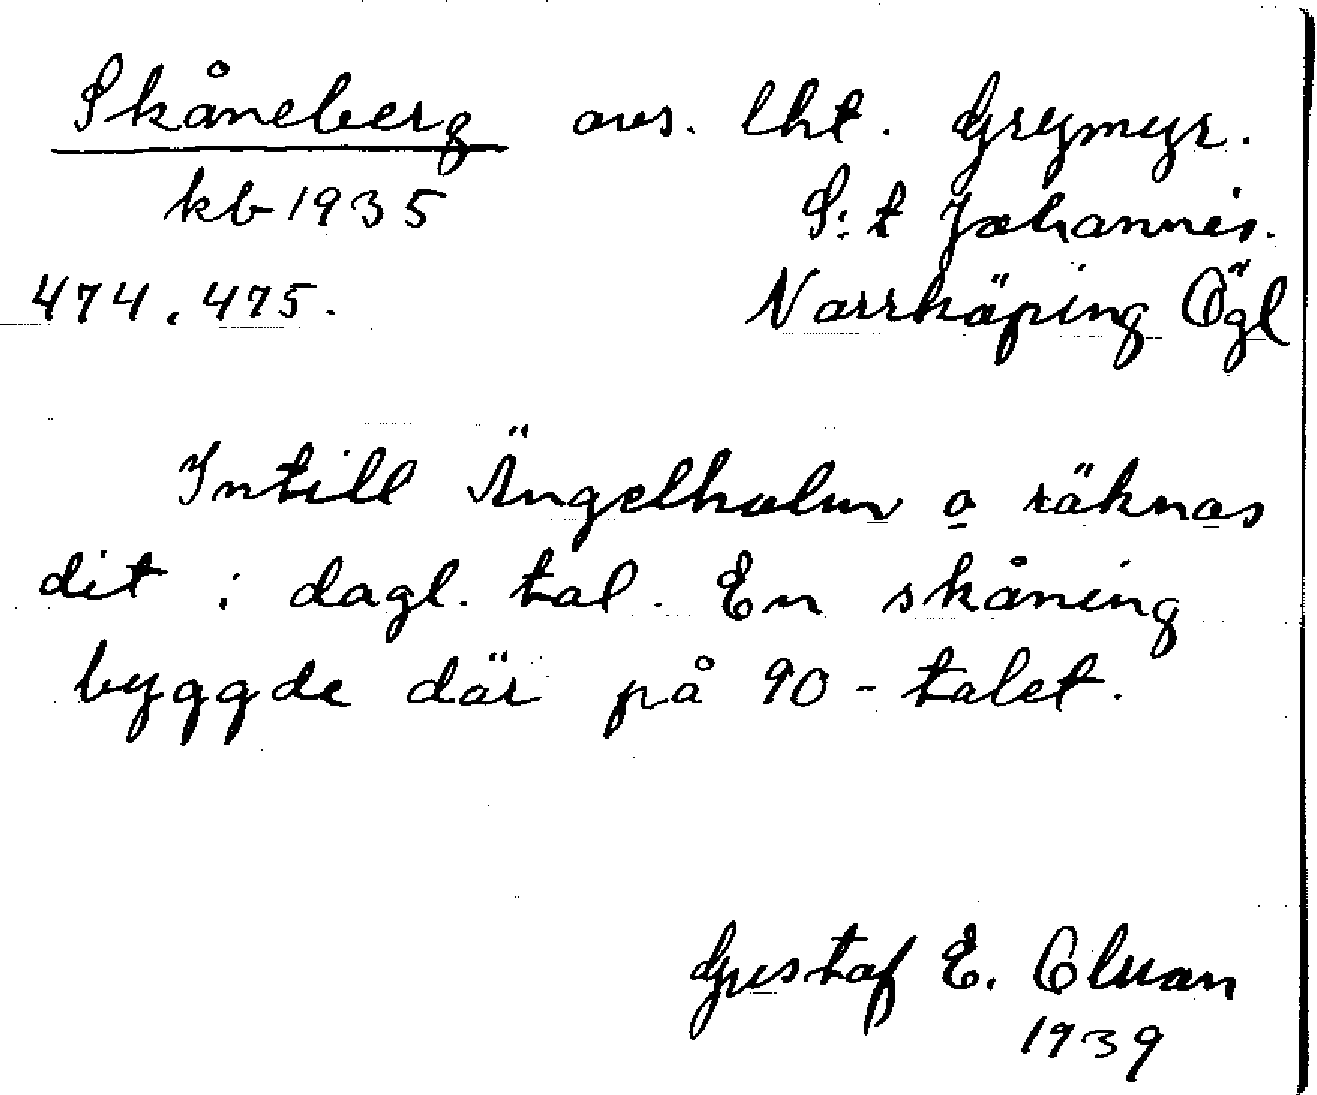 Skåneberg avs. lht. Grymyr.
kb 1935 S:t Johannis.
474. 475. Norrköping Ögl
Intill Ängelholm o räknas
dit i dagl. tal. En skåning
byggde där på 90-talet.
Gustaf E.
1939